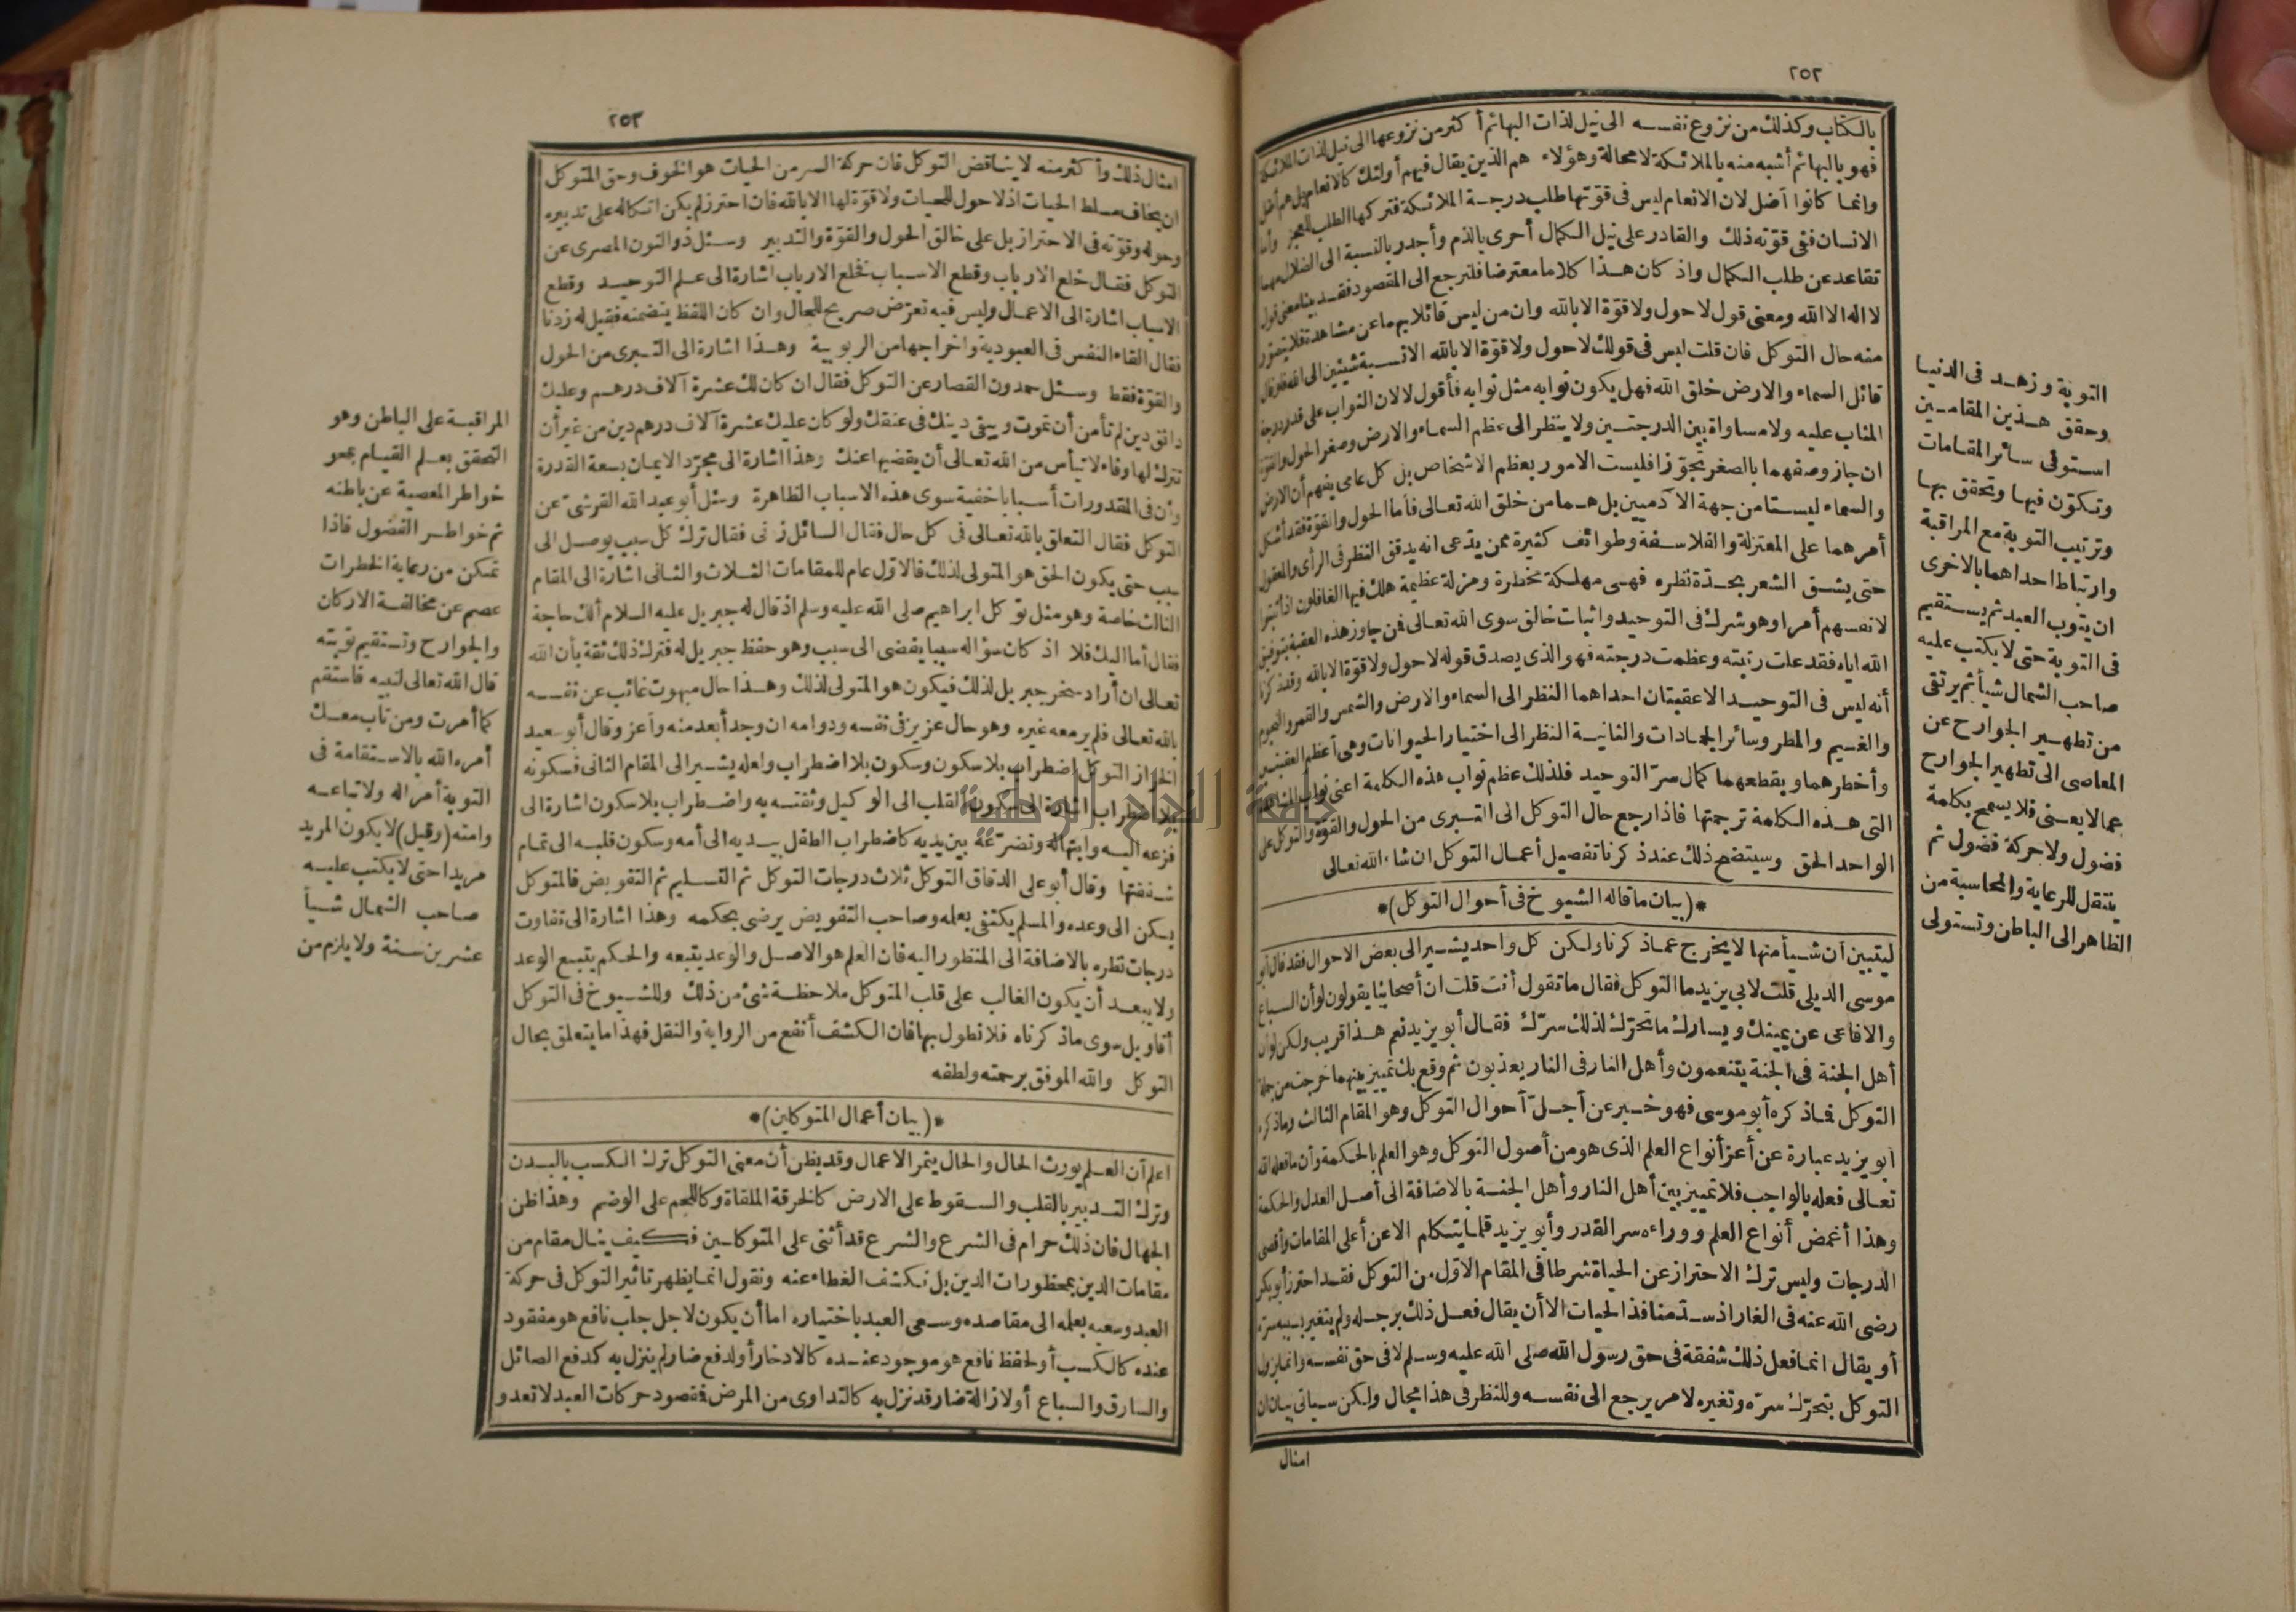 ٢٥٢
بالكتاب وكذلك من نزوع نفسه الى نيل لذات البهائم أكثر من نزوعها الى نيل لذات الملائكة
فهو بالبهائم أشبه منه بالملائكة لا محالة وهؤلاء هم الذين يقال فيهم أولئك كالانعام بل هم أضل
وانما كانوا أضل لان الانعام ليس فى قوّتها طلب درجة الملائكة فتركها الطلب للعجز وأما
الانسان ففى قوّته ذلك والقادر على نيل الكمال أحرى بالذم وأجدر بالنسبة الى الضلال مهما
تقاعد عن طلب الكمال واذ كان هذا كلاما معترضا فلنرجع الى المقصود فقد بينا معنى قول
لا اله الا الله ومعنى قول لا حول ولا قوّة الا بالله وان من ليس قائلا بهما عن مشاهدة فلا يتصوّر
منه حال التوكل فان قلت ليس فى قولك لا حول ولا قوّة الا بالله الا نسبة شيئين الى الله فلو قال
قائل السماء والارض خلق الله فهل يكون ثوابه مثل ثوابه فأقول لا لان الثواب على قدر درجة
المثاب عليه ولا مساواة بين الدرجتين ولا ينظر الى عظم السماء والارض وصغر الحول والقوّة
ان جاز وصفهما بالصغر تجوّزا فليست الامور بعظم الاشخاص بل كل عامى يفهم أن الارض
والسماء ليستا من جهة الآدميين بل هما من خلق الله تعالى فأما الحول والقوّة فقد أشكل
أمرهما على المعتزلة والفلاسفة وطوائف كثيرة ممن يدّعى انه يدقق النظر فى الرأى والمعقول
حتى يشق الشعر بحدّة نظره فهى مهلكة مخطرة ومزلة عظيمة هلك فيها الغافلون اذ أثبتوا
لانفسهم أمرا وهو شرك فى التوحيد واثبات خالق سوى الله تعالى فمن جاوز هذه العقبة بتوفيق
الله اياه فقد علت رتبته وعظمت درجته فهو الذى يصدق قوله لا حول ولا قوّة الا بالله وقد ذكرنا
أنه ليس فى التوحيد الا عقبتان احداهما النظر الى السماء والارض والشمس والقمر والنجوم
والغيم والمطر وسائر الجمادات والثانية النظر الى اختيار الحيوانات وهى أعظم العقبتين
وأخطرهما وبقطعهما كمال سرّ التوحيد فلذلك عظم ثواب هذه الكلمة اعنى ثواب المشاهدة
التى هذه الكلمة ترجمتها فاذا رجع حال التوكل الى التبرى من الحول والقوّة والتوكل على
الواحد الحق وسيتضح ذلك عند ذكرنا تفصيل أعمال التوكل ان شاء الله تعالى
*(بيان ما قاله الشيوخ فى أحوال التوكل)*
ليتبين أن شيأ منها لا يخرج عما ذكرنا ولكن كل واحد يشير الى بعض الاحوال فقد قال أبو
موسى الديلى قلت لابى يزيد ما التوكل فقال ما تقول أنت قلت ان أصحابنا يقولون لو أن السباع
والافاعى عن يمينك ويسارك ما تحرّك لذلك سرّك فقال أبو يزيد نعم هذا قريب ولكن لو أن
أهل الجنة فى الجنة يتنعمون وأهل النار فى النار يعذبون ثم وقع بك تمييز بينهما خرجت من جملة
التوكل فما ذكره أبو موسى فهو خبر عن أجلّ أحوال التوكل وهو المقام الثالث وما ذكره
أبو يزيد عبارة عن أعز أنواع العلم الذى هو من أصول التوكل وهو العلم بالحكمة وأن ما فعله الله
تعالى فعله بالواجب فلا تمييز بين أهل النار وأهل الجنة بالاضافة الى أصل العدل والحكمة
وهذا أغمض أنواع العلم ووراءه سر القدر وأبو يزيد قلما يتكلم الا عن أعلى المقامات وأقصى
الدرجات وليس ترك الاحتراز عن الحياة شرطا فى المقام الاوّل من التوكل فقد احترز أبو بكر
رضى الله عنه فى الغار اذ سدّ منافذ الحيات الا أن يقال فعل ذلك برجله ولم يتغير بسببه سرّه
أو يقال انما فعل ذلك شفقة فى حق رسول الله صلى الله عليه وسلم لا فى حق نفسه وانما يزول
التوكل بتحرّك سرّه وتغيره لامر يرجع الى نفسه وللنظر فى هذا مجال ولكن سيأتى بيان ان
امثال
التوبة وزهد فى الدنيا
وحقق هذين المقامين
استوفى سائر المقامات
وتكوّن فيها وتحقق بها
وترتيب التوبة مع المراقبة
وارتباط احداهما بالاخرى
ان يتوب العبد ثم يستقيم
فى التوبة حتى لا يكتب عليه
صاحب الشمال شيأ ثم يرتقى
من تطهير الجوارح عن
المعاصى الى تطهير الجوارح
عما لا يعنى فلا يسمح بكلمة
فضول ولا حركة فضول ثم
ينتقل للرعاية والمحاسبة من
الظاهر الى الباطن وتستولى
٢٥٣
امثال ذلك وأكثر منه لا يناقض التوكل فان حركة السر من الحيات هو الخوف وحق المتوكل
ان يخاف مسلط الحيات اذ لا حول للحيات ولا قوّة لها الا بالله فان احترز لم يكن اتكاله على تدبيره
وحوله وقوّته فى الاحتراز بل على خالق الحول والقوّة والتدبير وسئل ذو النون المصرى عن
التوكل فقال خلع الارباب وقطع الاسباب فخلع الارباب اشارة الى علم التوحيد وقطع
الاسباب اشارة الى الاعمال وليس فيه تعرّض صريح للحال وان كان اللفظ يتضمنه فقيل له زدنا
فقال القاء النفس فى العبودية واخراجها من الربوبية وهذا اشارة الى التبرى من الحول
والقوّة فقط وسئل حمدون القصار عن التوكل فقال ان كان لك عشرة آلاف درهم وعليك
دانق دين لم تأمن أن تموت ويبقى دينك فى عنقك ولو كان عليك عشرة آلاف درهم دين من غير أن
تترك لها وفاء لا تيأس من الله تعالى أن يقضيها عنك وهذا اشارة الى مجرّد الايمان بسعة القدرة
وأن فى المقدورات أسبابا خفية سوى هذه الاسباب الظاهرة وسئل أبو عبد الله القرشىّ عن
التوكل فقال التعلق بالله تعالى فى كل حال فقال السائل زدنى فقال ترك كل سبب يوصل الى
سبب حتى يكون الحق هو المتولى لذلك فالاوّل عام للمقامات الثلاث والثانى اشارة الى المقام
الثالث خاصة وهو مثل توكل ابراهيم صلى الله عليه وسلم اذ قال له جبريل عليه السلام ألك حاجة
فقال أما اليك فلا اذ كان سؤاله سببا يفضى الى سبب وهو حفظ جبريل له فترك ذلك ثقة بأن الله
تعالى ان أراد سخر جبريل لذلك فيكون هو المتولى لذلك وهذا حال مبهوت غائب عن نفسه
بالله تعالى فلم ير معه غيره وهو حال عزيز فى نفسه ودوامه ان وجد أبعد منه وأعز وقال أبو سعيد
الخراز التوكل اضطراب بلا سكون وسكون بلا اضطراب ولعله يشير الى المقام الثانى فسكونه
بلا اضطراب اشارة الى سكون القلب الى الوكيل وثقته به واضطراب بلا سكون اشارة الى
فزعه اليه وابتهاله وتضرّعه بين يديه كاضطراب الطفل بيديه الى أمه وسكون قلبه الى تمام
شفقتها وقال أبو على الدقاق التوكل ثلاث درجات التوكل ثم التسليم ثم التفويض فالمتوكل
يسكن الى وعده والمسلم يكتفى بعلمه وصاحب التفويض يرضى بحكمه وهذا اشارة الى تفاوت
درجات نظره بالاضافة الى المنظور اليه فان العلم هو الاصل والوعد يتبعه والحكم يتبع الوعد
ولا يبعد أن يكون الغالب على قلب المتوكل ملاحظة شئ من ذلك وللشيوخ فى التوكل
أقاويل سوى ما ذكرناه فلا نطول بها فان الكشف أنفع من الرواية والنقل فهذا ما يتعلق بحال
التوكل والله الموفق برحمته ولطفه
*(بيان أعمال المتوكلين)*
اعلم أن العلم يورث الحال والحال يثمر الاعمال وقد يظن أن معنى التوكل ترك الكسب بالبدن
وترك التدبير بالقلب والسقوط على الارض كالخرقة الملقاة وكاللحم على الوضم وهذا ظن
الجهال فان ذلك حرام فى الشرع والشرع قد أثنى على المتوكلين فكيف ينال مقام من
مقامات الدين بمحظورات الدين بل نكشف الغطاء عنه ونقول انما يظهر تأثير التوكل فى حركة
العبد وسعيه بعلمه الى مقاصده وسعى العبد باختياره اما أن يكون لاجل جلب نافع هو مفقود
عنده كالكسب أو لحفظ نافع هو موجود عنده كالادخار أو لدفع ضار لم ينزل به كدفع الصائل
والسارق والسباع أو لازالة ضار قد نزل به كالتداوى من المرض فقصود حركات العبد لا تعدو
المراقبة على الباطن وهو
التحقق بعلم القيام بمحو
خواطر المعصية عن باطنه
ثم خواطر الفضول فاذا
تمكن من رعاية الخطرات
عصم عن مخالفة الاركان
والجوارح وتستقيم توبته
قال الله تعالى لنبيه فاستقم
كما أمرت ومن تاب معك
أمره الله بالاستقامة فى
التوبة أمرا له ولاتباعه
وامته (وقيل) لا يكون المريد
مريدا حتى لا يكتب عليه
صاحب الشمال شيأ
عشرين سنة ولا يلزم من
جامعة النجاح الوطنية